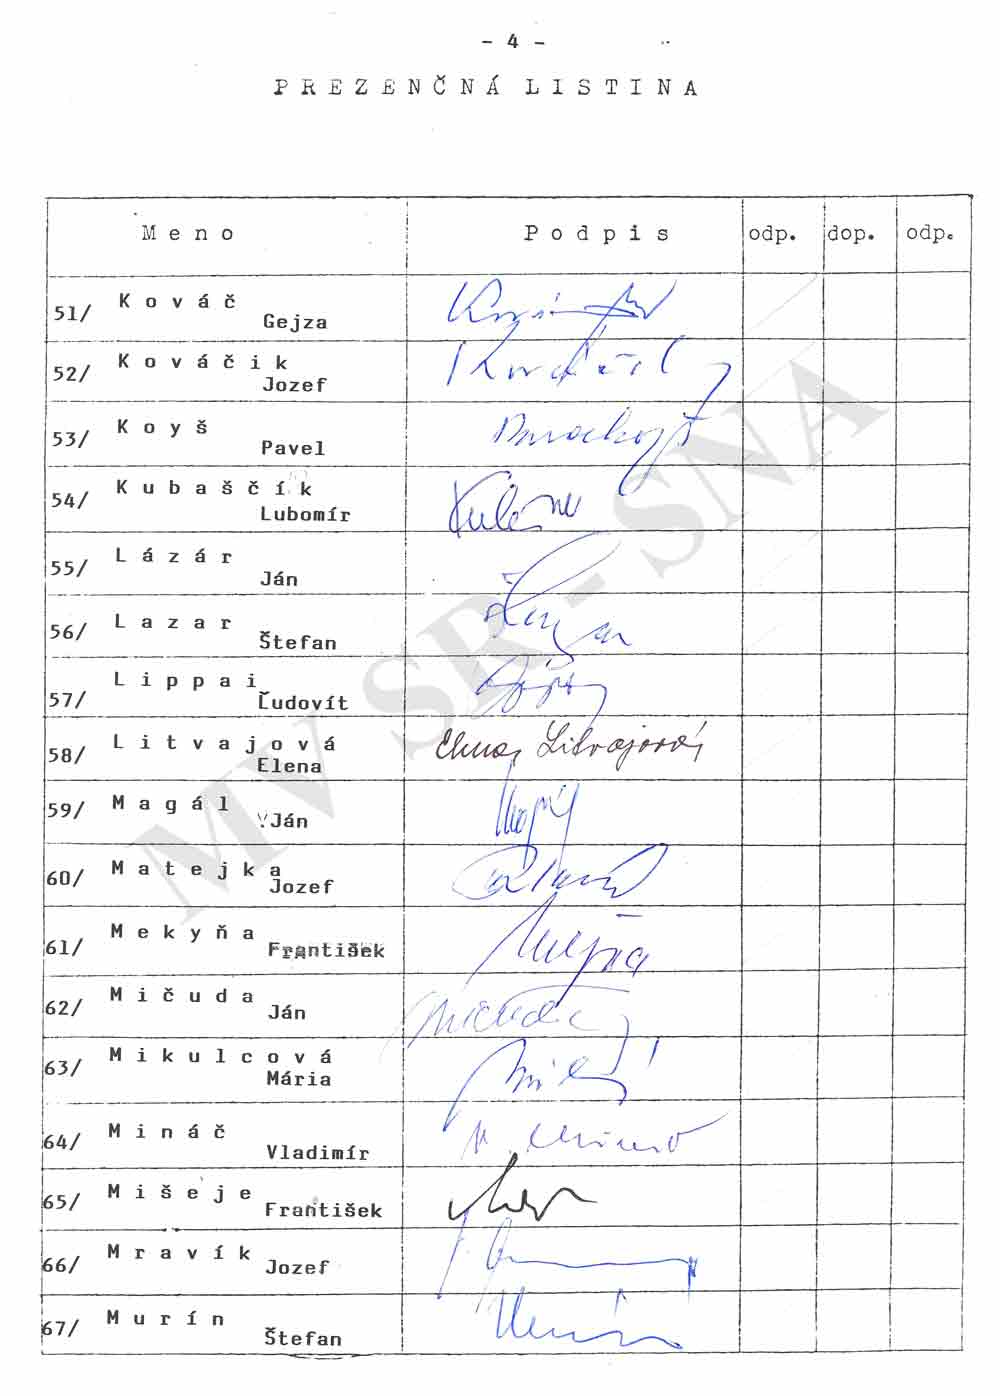 - 4 -
PREZENČNÁ LISTINA
Meno Podpis odp. dop. odp.
51/ Kováč
Gejza
52/ Kováčik
Jozef
53/ Koyš
Pavel
54/ Kubaščík
Lubomír
55/ Lázár
Ján
56/ Lazar
Štefan
57/ Lippai
Ľudovít
58/ Litvajová
Elena Elena Litvajová
59/ Magál
Ján
60/ Matejka
Jozef
61/ Mekyňa
František
62/ Mičuda
Ján
63/ Mikulcová
Mária
64/ Mináč
Vladimír
65/ Mišeje
František
66/ Mravík
Jozef
67/ Murín
Štefan
MV SR - SNA